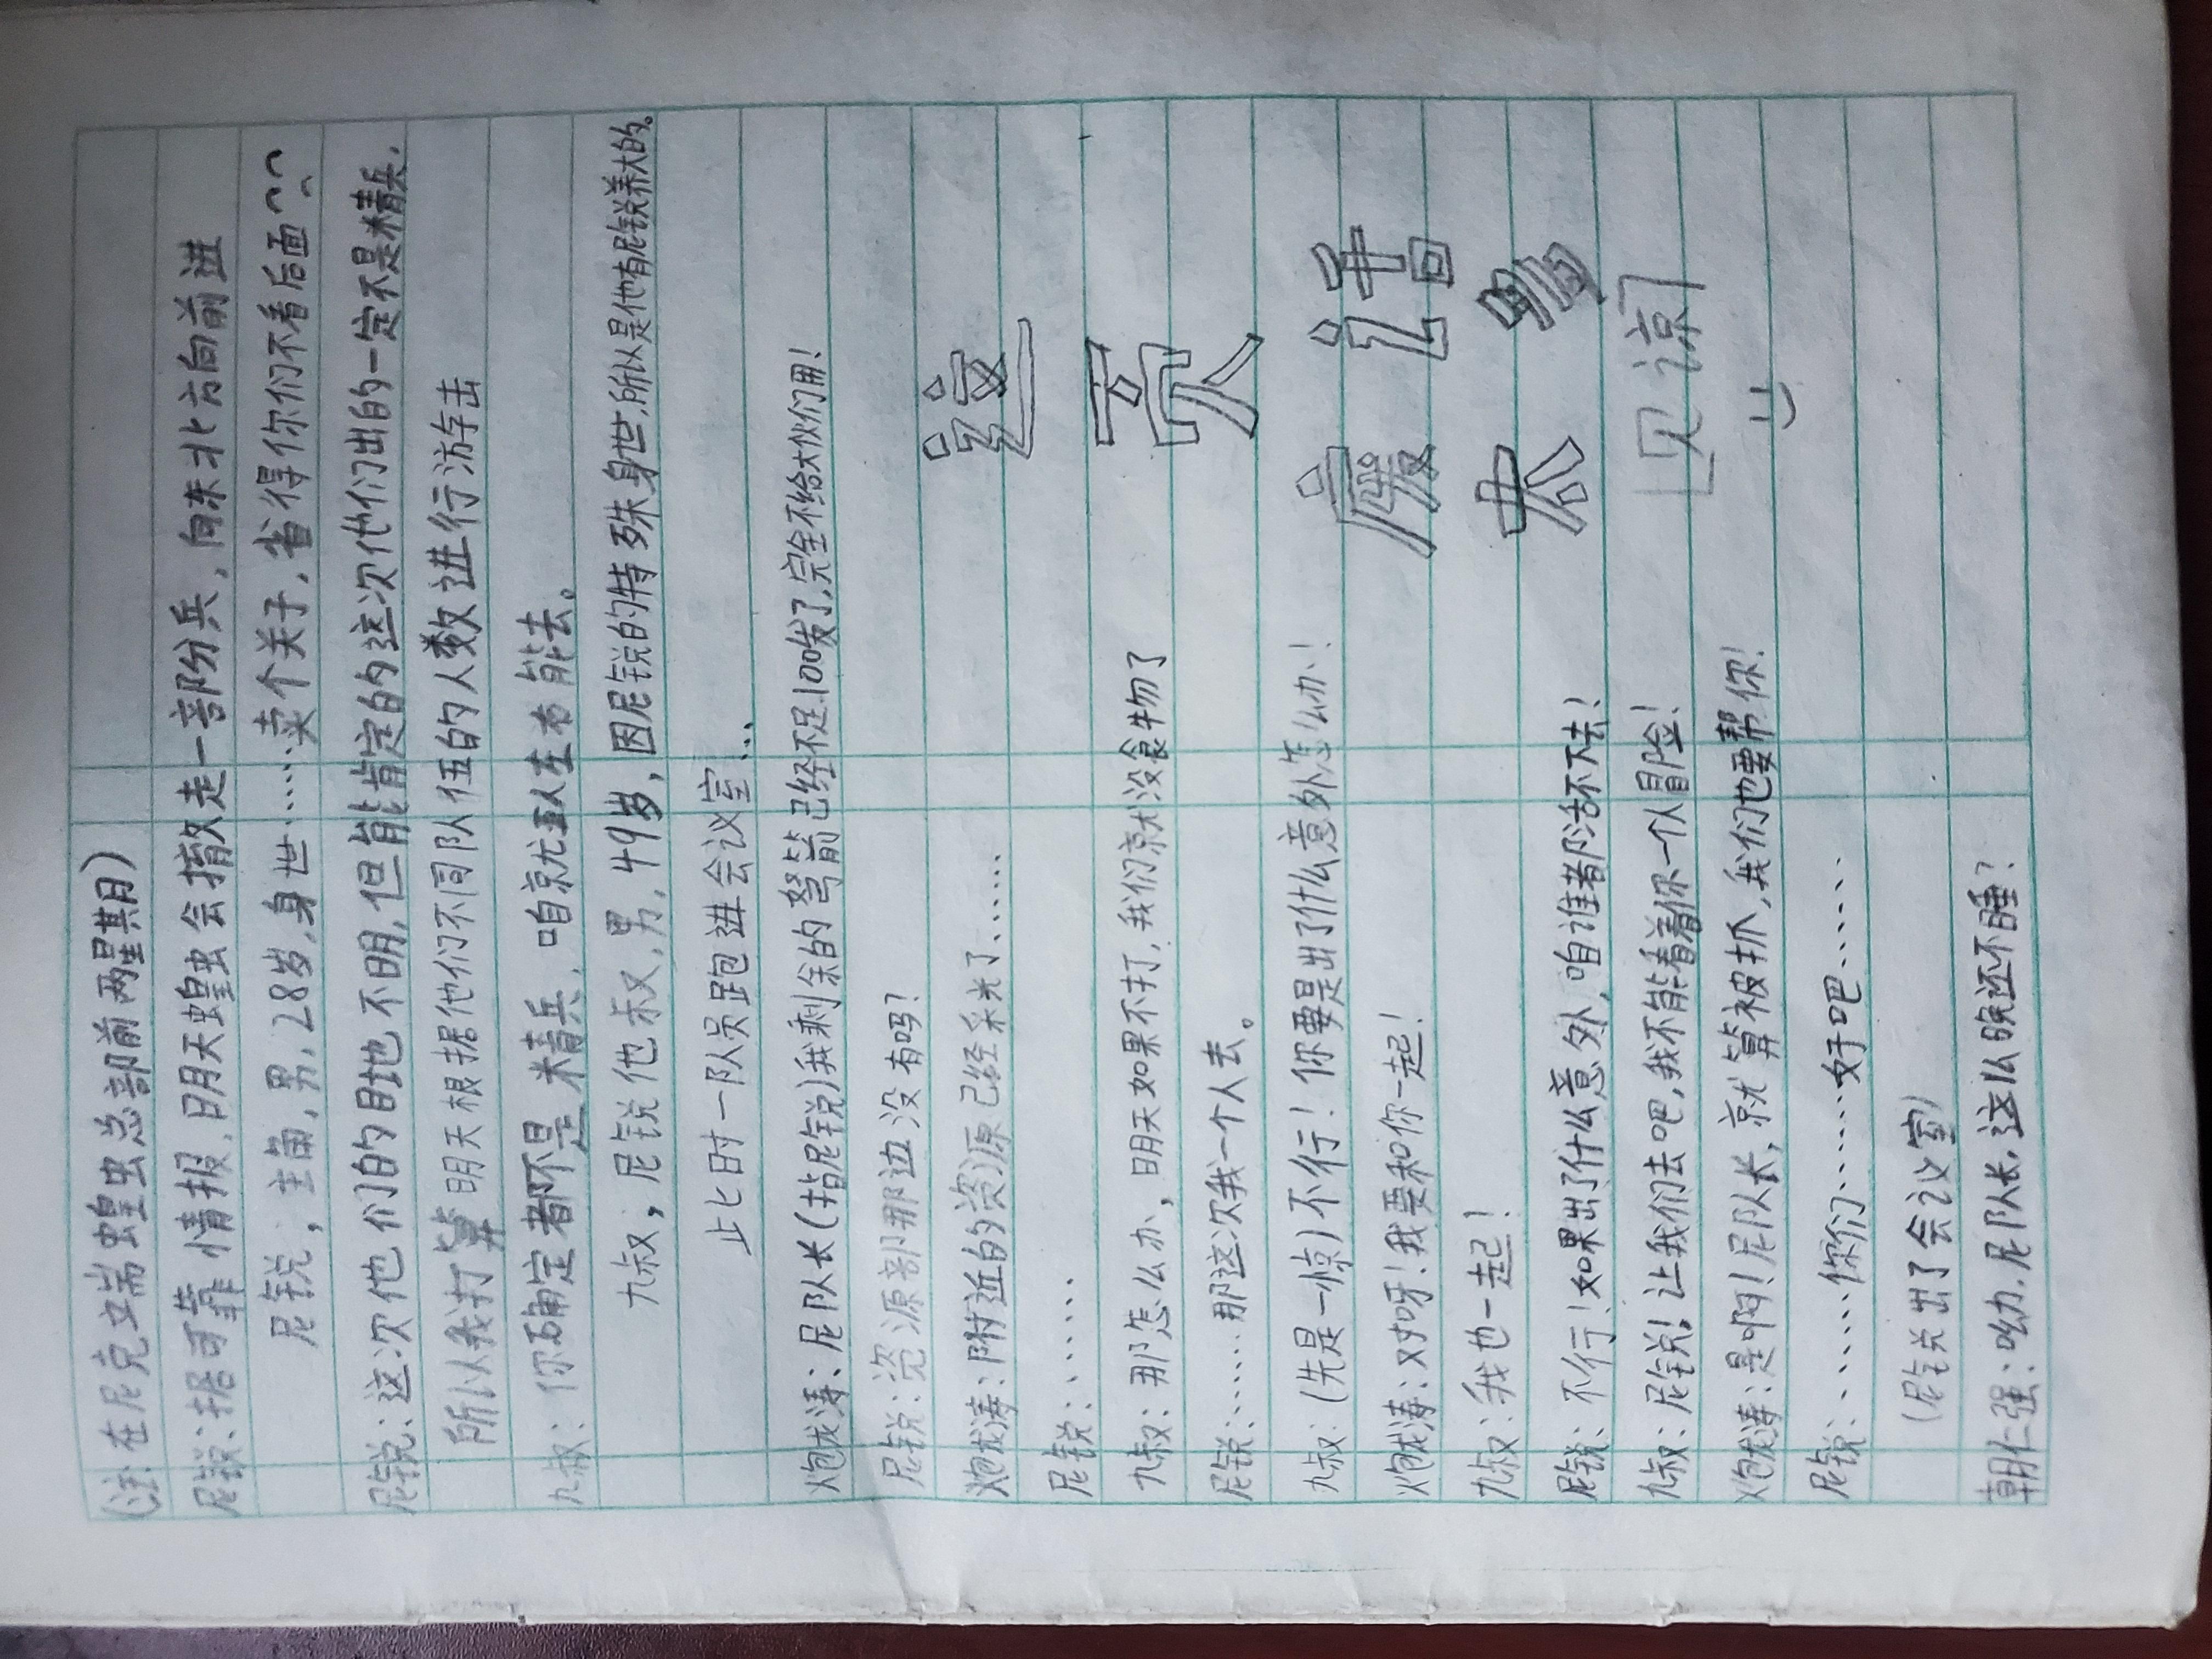 (注:在尼克立端蝗虫总部前两星期日)
尼锐:据可靠情报,明天蝗虫会撤走一部分兵,向东北方向前进
尼锐,主角,男,28岁,身世……卖个关子,省得你们不看后面
尼锐:这次他们的目地不明,但能肯定的这次他们出的一定不是精兵,
所以我打算明天根据他们不同队伍的人数进行游击
九叔:你确定都不是精兵,咱就五人左右能去。
九叔,尼锐他叔,男,49岁,因尼锐的特殊身世,所以是他有尼锐养大的。
此时一队员跑进会议室…
炮龙涛:尼队长(指尼锐)我剩余的弩箭已经不足100发了,完全不给大伙们用!
尼锐:资源部那边没有吗?
炮龙涛:附近的资源已经采光了……
尼锐:……
九叔:那怎么办,明天如果不打,我们就没食物了
尼锐:……那这次我一个人去。
九叔:(先是一惊)不行!你要是出了什么意外怎么办!
炮龙涛:对呀!我要和你一起!
九叔:我也一起!
尼锐:不行!如果出了什么意外,咱谁都活不下去!
九叔:尼锐!让我们去吧,我不能看着你一个人冒险!
炮龙涛:是啊!尼队长,就算被抓,我们也要帮你!
尼锐:……你们……好吧……
(尼锐出了会议室)
朝仁强:呦,尼队长,这么晚还不睡?
这
页
废话
太多
见谅